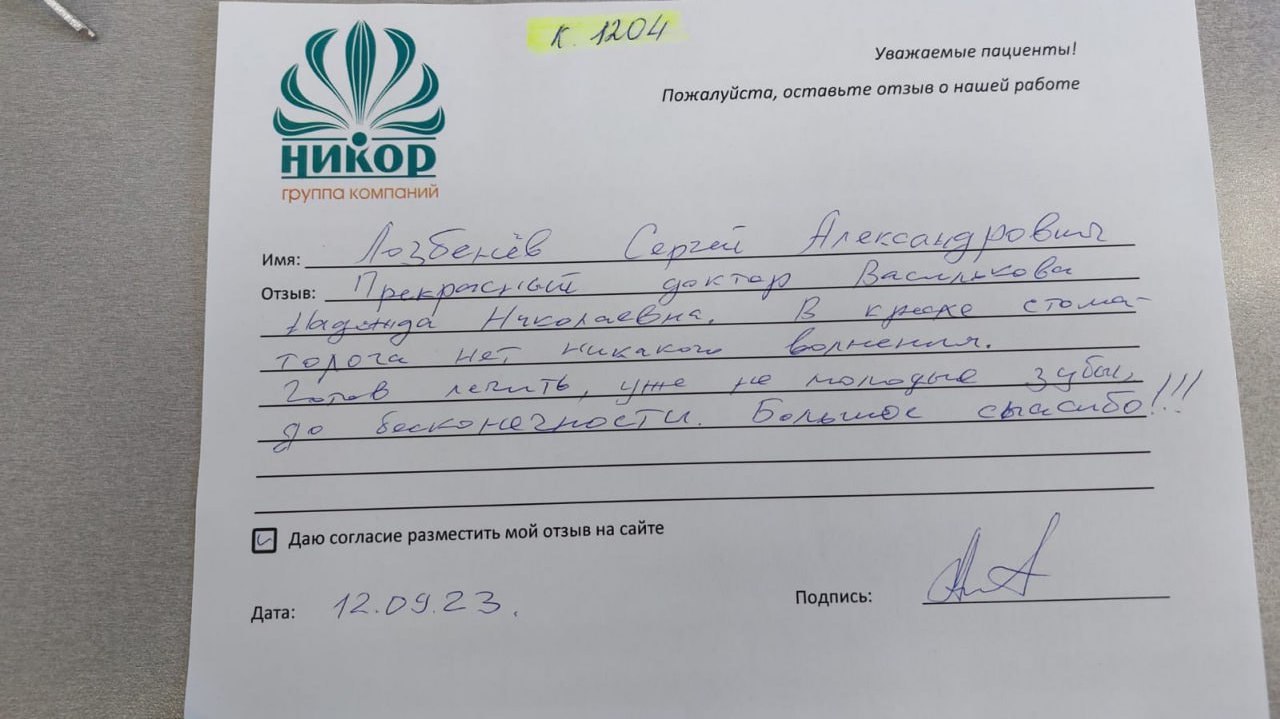 К. 1204
Уважаемые пациенты!
Пожалуйста, оставьте отзыв о нашей работе
НИКОР
группа компаний
Имя: Лозбенёв Сергей Александрович
Отзыв: Прекрасный доктор Василькова
Надежда Николаевна. В кресле стома-
толога нет никакого волнения.
Готов лечить, уже не молодые зубы,
до бесконечности. Большое спасибо!!!
Даю согласие разместить мой отзыв на сайте
Дата: 12.09.23.
Подпись: